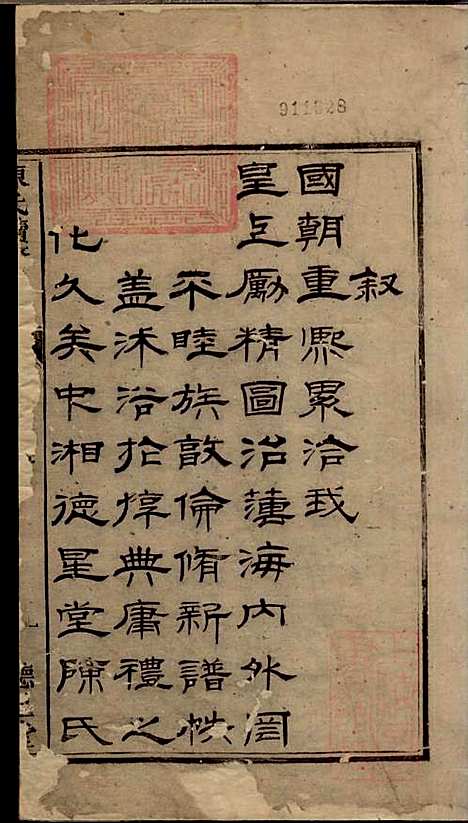 叙
國朝重熙累洽我
皇上勵精圖治薄海内外罔
不睦族敦倫脩新譜帙
蓋沐浴於惇典庸禮之
化久矣中湘德星堂陳氏
911028
德星堂